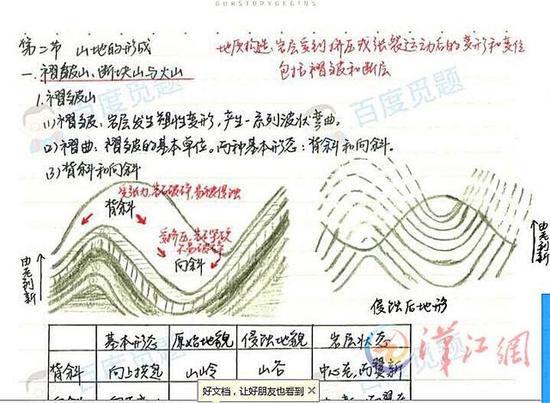 OURSTORYBEGINS
第二节 山地的形成
地质构造:岩层受到挤压或张裂运动后的变形和变位
包括褶皱和断层
一.褶皱山、断块山与火山
1.褶皱山
(1)褶皱:岩层发生塑性变形,产生一系列波状弯曲。
(2)褶曲:褶皱的基本单位。两种基本形态:背斜和向斜。
(3)背斜和向斜
受张力,岩石破碎,易被侵蚀
背斜
受挤压,岩石坚硬
不易被侵蚀
向斜
由老到新
由老到新
侵蚀后地形
基本形态 原始地貌 侵蚀地貌 岩层状态
背斜 向上拱起 山岭 山谷 中心老,两翼新
百度觅题
百度觅题
汉江網
好文档,让好朋友也看到